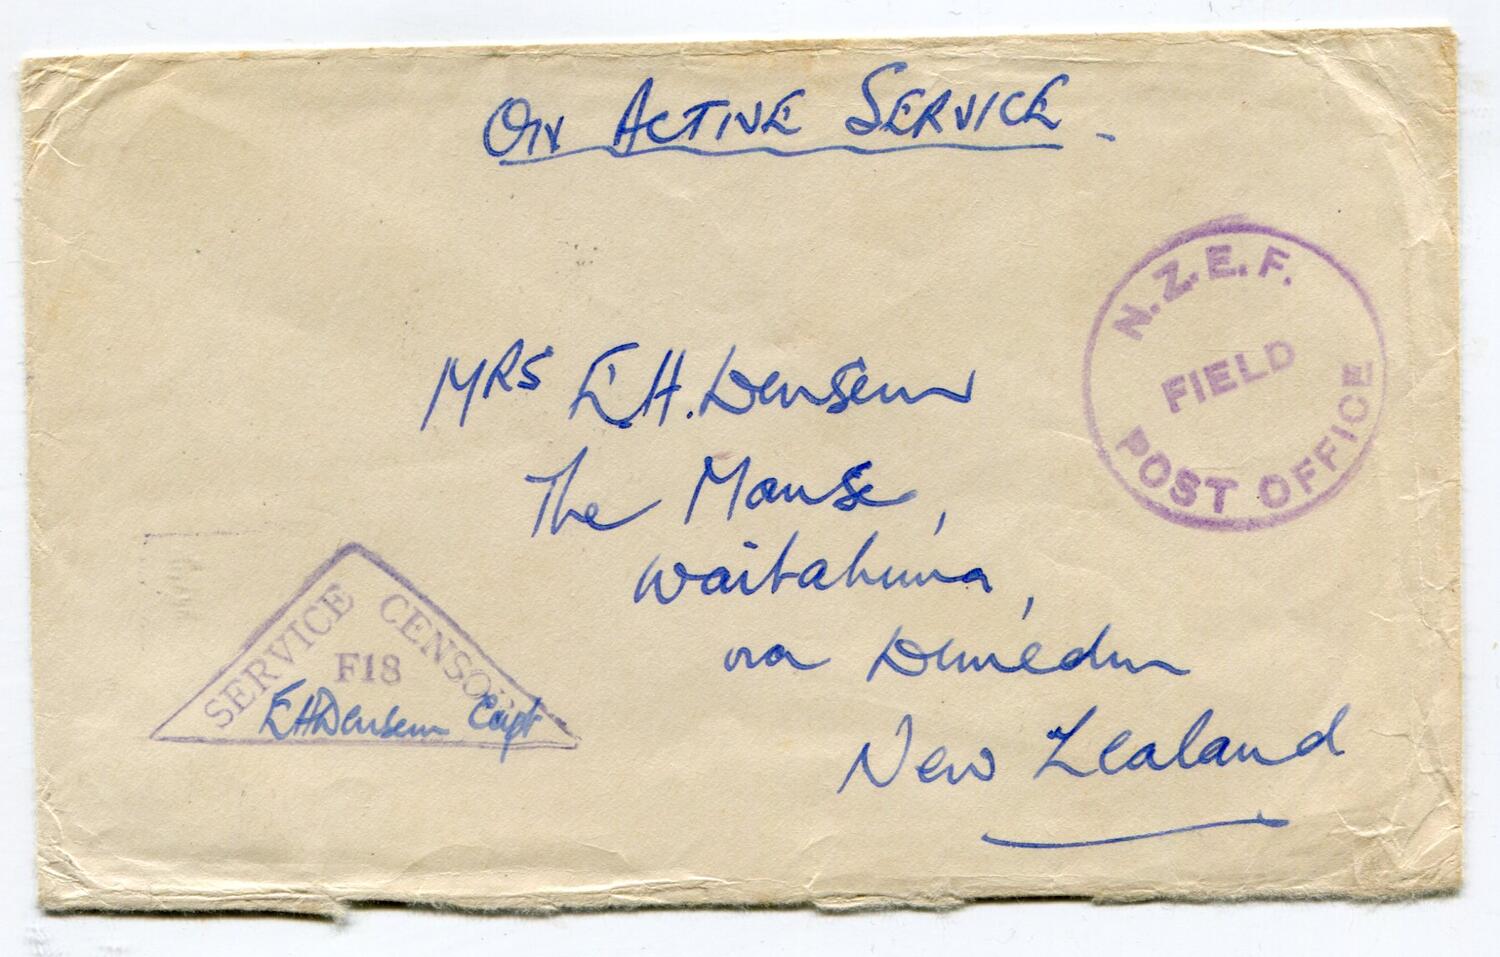 On Active Service -
N.Z.E.F.
FIELD
POST OFFICE
MRS E.H. Densem
The Manse,
Waitahuna,
via Dunedin
New Zealand
SERVICE CENSOR
F18
EHDensem Capt